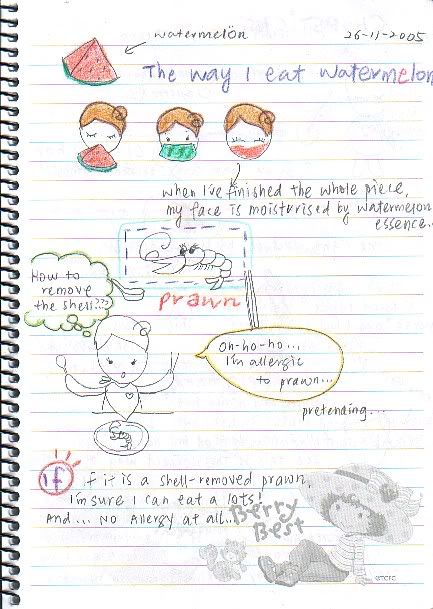 watermelon
26-11-2005
The way I eat watermelon
when I've finished the whole piece,
my face is moisturised by watermelon
essence..
How to
remove
the shell???
prawn
Oh-ho-ho...
I'm allergic
to prawn...
pretending...
If
f it is a shell-removed prawn,
I'm sure I can eat a lots!
And... No allergy at all...
Berry
Best
©TCFC